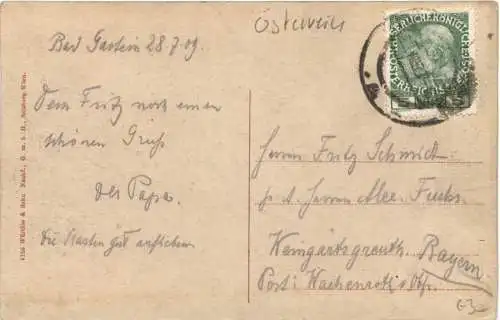 Österreich
Bad Gastein 28.7.09.
Dem Fritz noch einen
schönen Gruß
der Papa.
die Karten gut aufheben.
4126 Würthle & Sohn Nachf., G. m. b. H., Salzburg-Wien.
Herrn Fritz Schmidt
Herrn Alex. Fuchs
Weingartsgreuth
Bayern
Post: Wachenroth
63